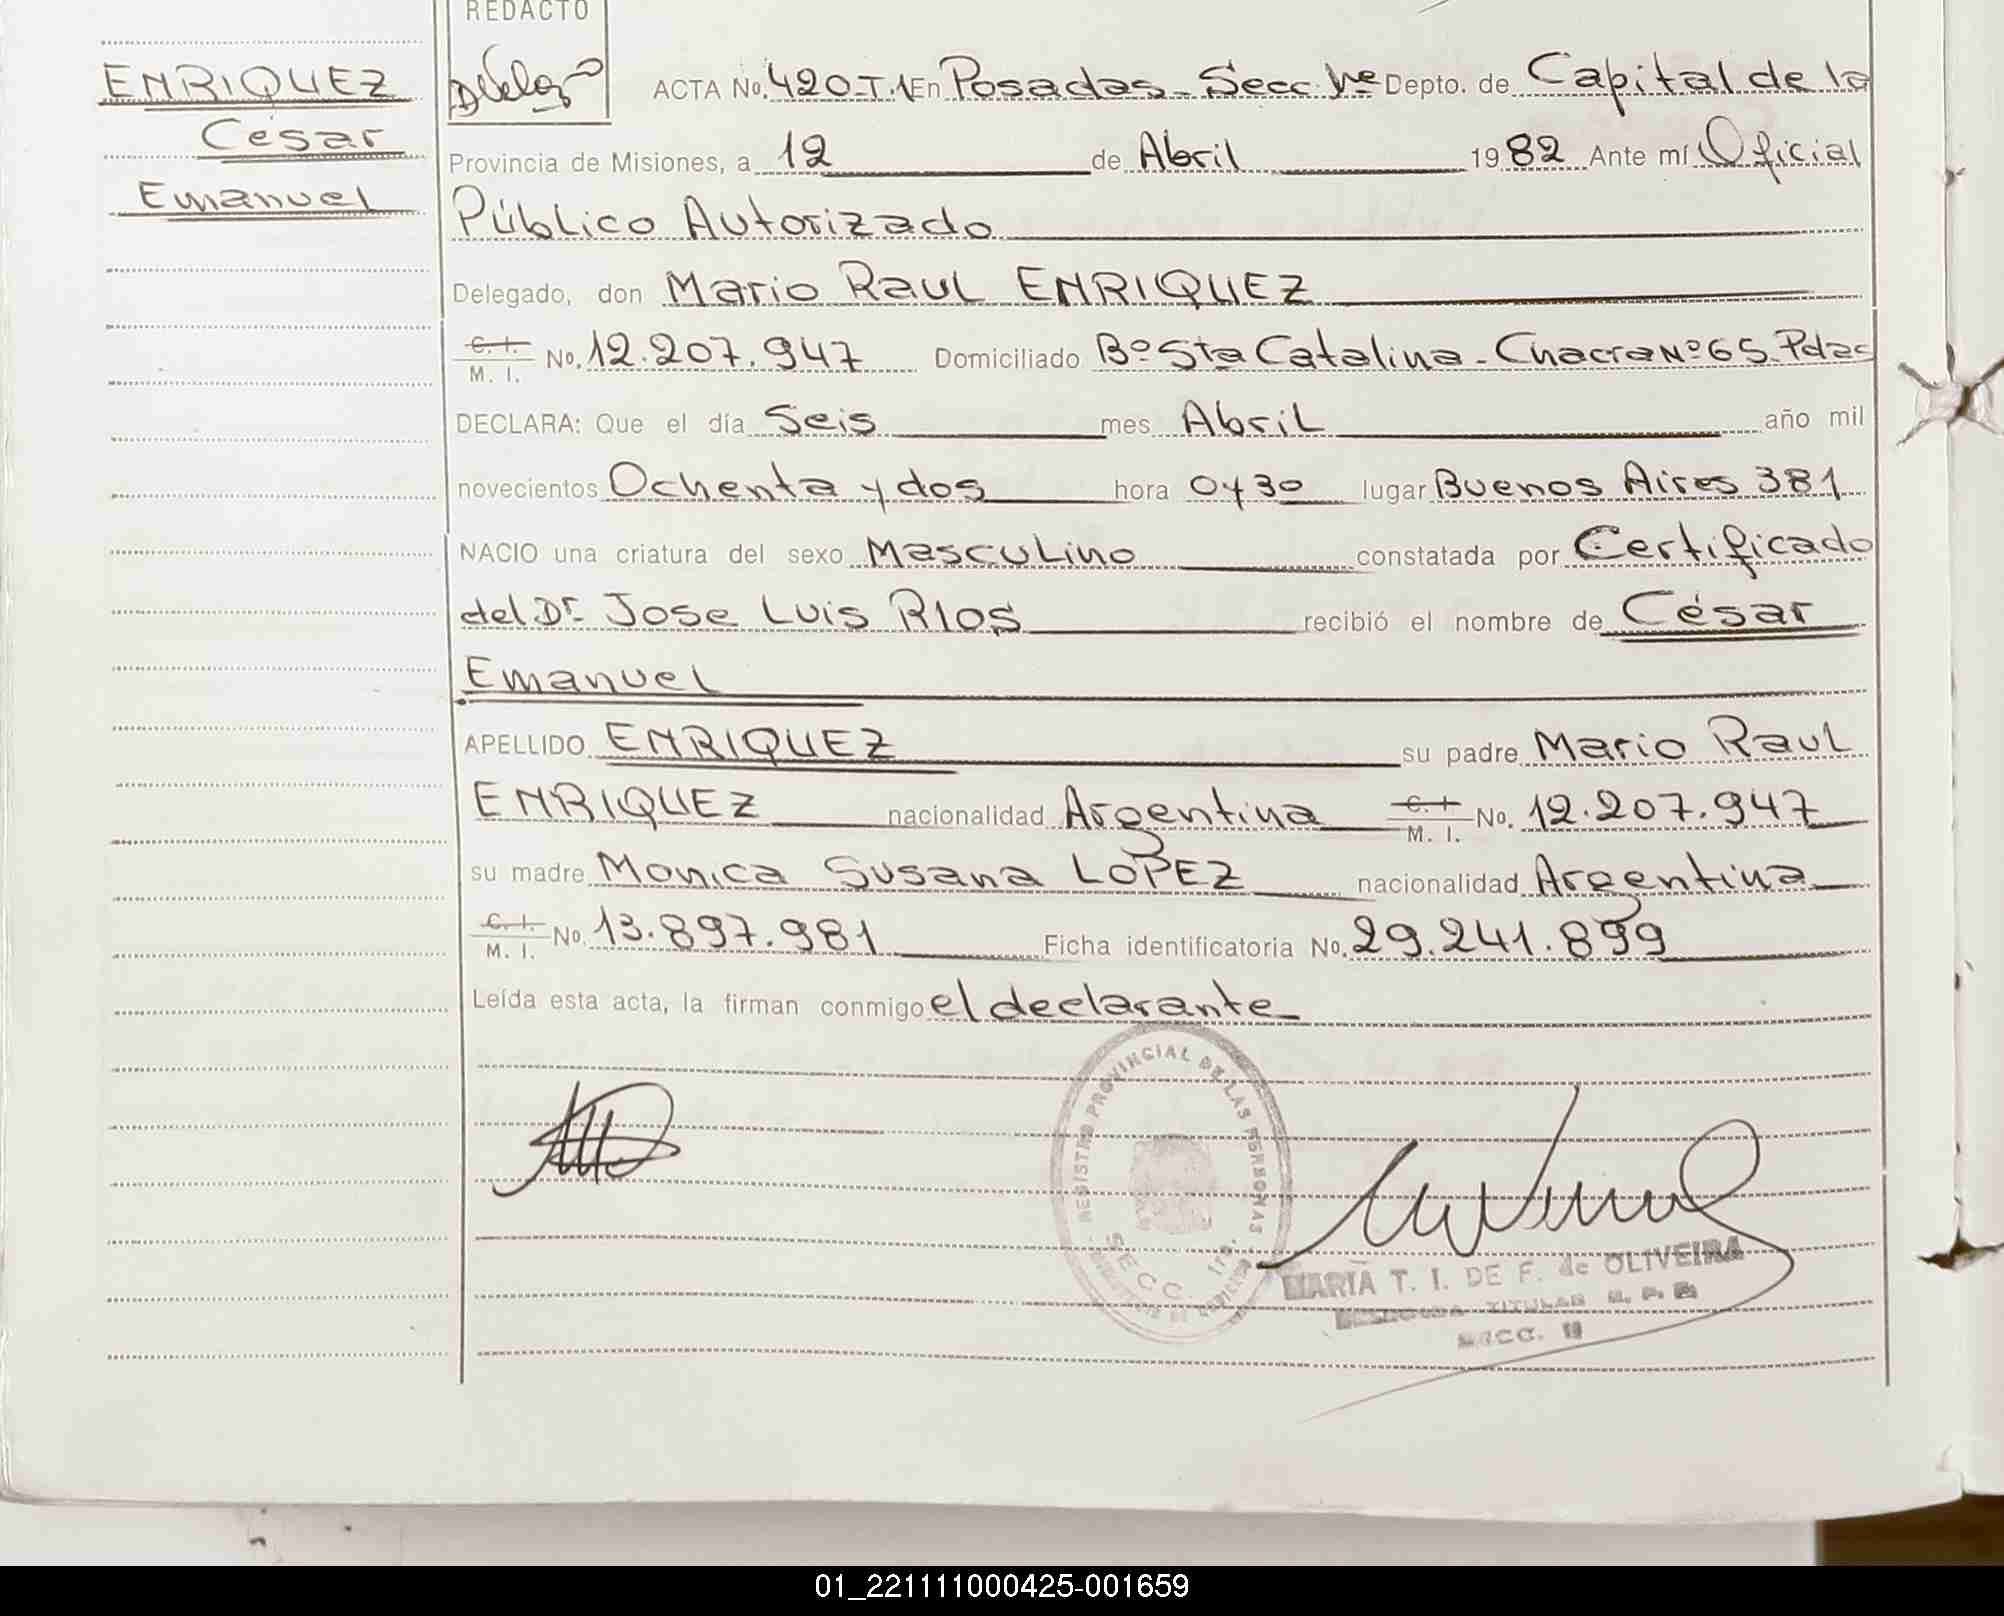 REDACTO
ENRIQUEZ
César
Emanuel
ACTA No. 420-T.1 En Posadas - Secc 1ra Depto. de Capital de la
Provincia de Misiones, a 12 de Abril 1982 Ante mí Oficial
Público Autorizado
Delegado, don Mario Raul ENRIQUEZ
C. I.
M. I. No. 12.207.947 Domiciliado Bº Sta Catalina - Chacra Nº 65 Pdas
DECLARA: Que el día Seis mes Abril año mil
novecientos Ochenta y dos hora 0y30 lugar Buenos Aires 381
NACIO una criatura del sexo Masculino constatada por Certificado
del Dr. Jose Luis RIOS recibió el nombre de César
Emanuel
APELLIDO ENRIQUEZ su padre Mario Raul
ENRIQUEZ nacionalidad Argentina C. I. M. I. No. 12.207.947
su madre Monica Susana LOPEZ nacionalidad Argentina
C. I.
M. I. No. 13.897.981 Ficha identificatoria No. 29.241.899
Leída esta acta, la firman conmigo el declarante
REGISTRO PROVINCIAL DE LAS PERSONAS
SECC. 1ra.
MARIA T. I. DE F. de OLIVEIRA
TITULAR
SECC.
01_221111000425-001659